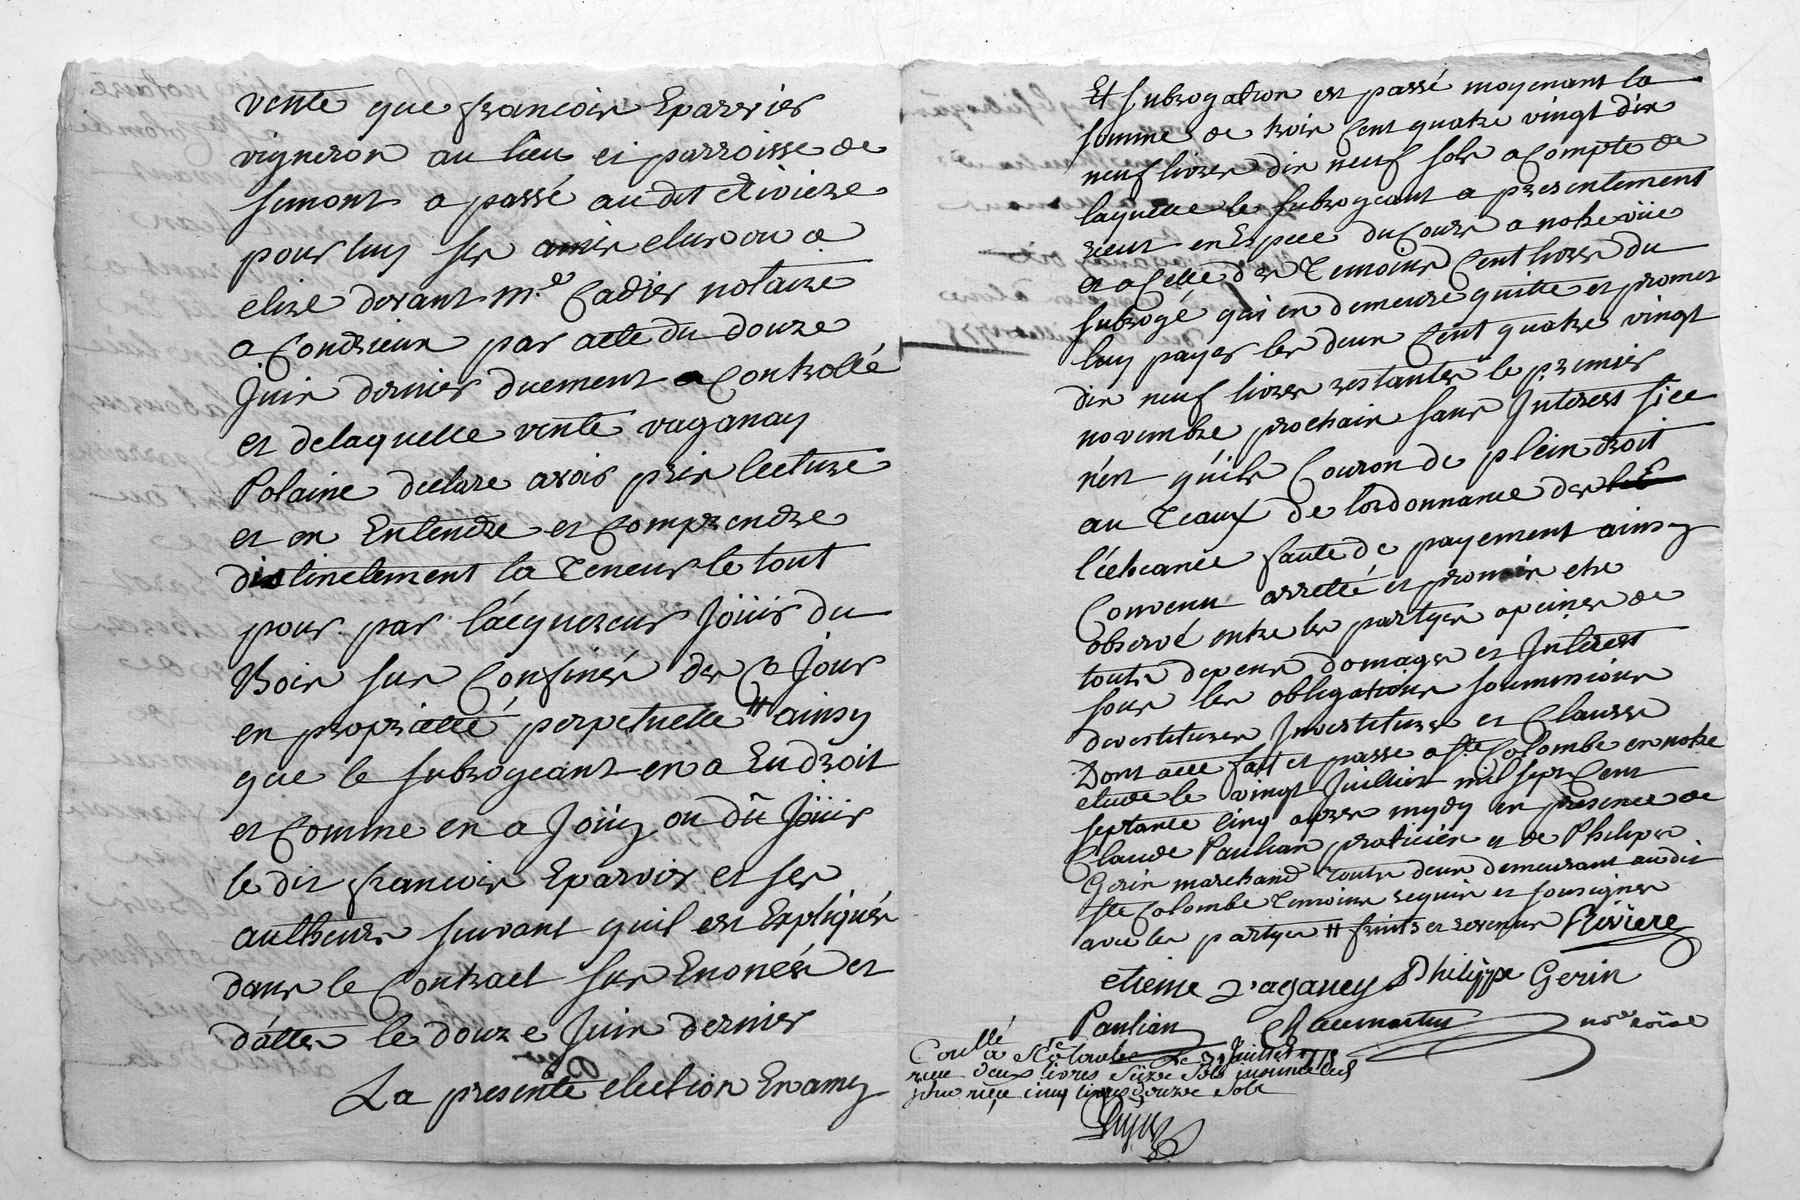 vente que francois Eparvier
vigneron au lieu et parroisse de
Simont a passé audit Riviere
pour luy ses amis elus ou a
elire devant m.e Cadier notaire
a Condrieux par acte du douze
Juin dernier duement Controllé
et delaquelle vente vaganay
Polaine declare avoir pris lecture
et en Entendre et Comprendre
distinctement la Teneur le tout
pour par l'acquereur Joüir du
Bois sus Confiné des Ce Jour
en proprieté perpetuelle # ainsy
que le subrogeant en a Eu droit
et Comme en a Joüy ou dû Joüir
le dit francois Eparvier et ses
autheurs suivant quil est Expliqués
dans le Contract sus Enoncés et
datter le douze Juin dernier
La presente election En amy
Et subrogation est passé moyenant la
somme de trois Cent quatre vingt dix
neuf livres dix neuf sols acompte de
laquelle le subrogeant a presentement
recut en Espece du Cours a notre vüe
et a Celle des Temoins Cent livres du
subrogé qui en demeure quitte et promet
luy payer les deux Cent quatre vingt
dix neuf livres restantes le premier
novembre prochain sans Interest si ce
n'est qu'ils Couron de plein droit
au Teaux de lordonnance des
l'écheance faute de payement ainsy
Convenu arretté et promis etre
observé entre les partyes apeines de
touts depens domages et Interest
sous les obligations soumissions
devestitures Investitures et Clauses
Dont acte fait et passe a Ste Colombe en notre
etude le vingt Juilliet mil sept Cent
septante Cinq apres mydy en presence de
Claude Paulian praticien et de Philipe
Gerin marchand touts deux demeurant audit
Ste Colombe Temoins requis et sousignes
avec les partyes # Riviere
etieine Vaganey Philippe Gerin
Paulian Chaumartin no.re roïal
Coullé
à Ste Colombe le 31 Juillet 1775
recu deux livres Seize sols
recu cinq livres douze sols